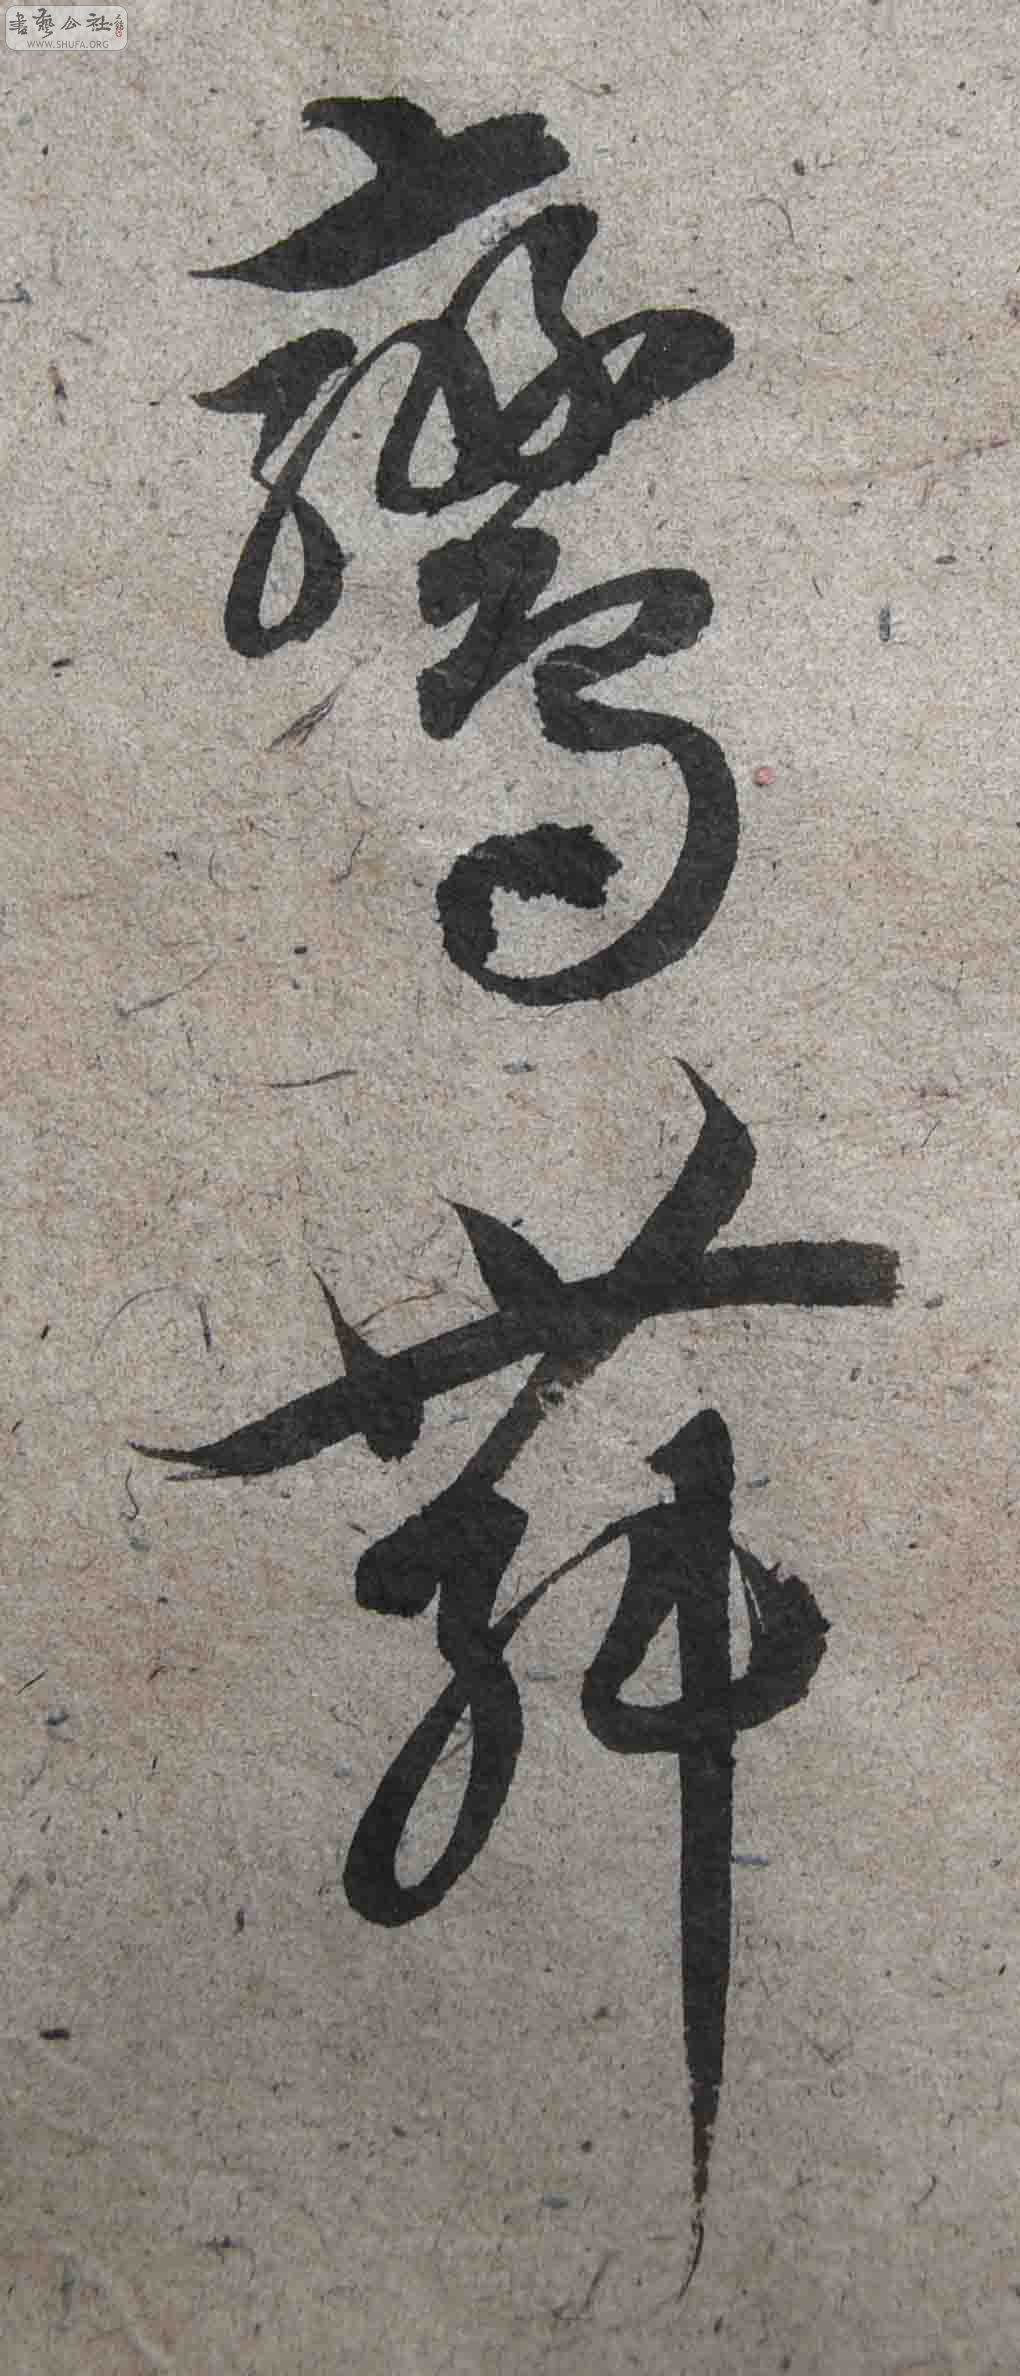 書藝公社
WWW.SHUFA.ORG
鸞舞